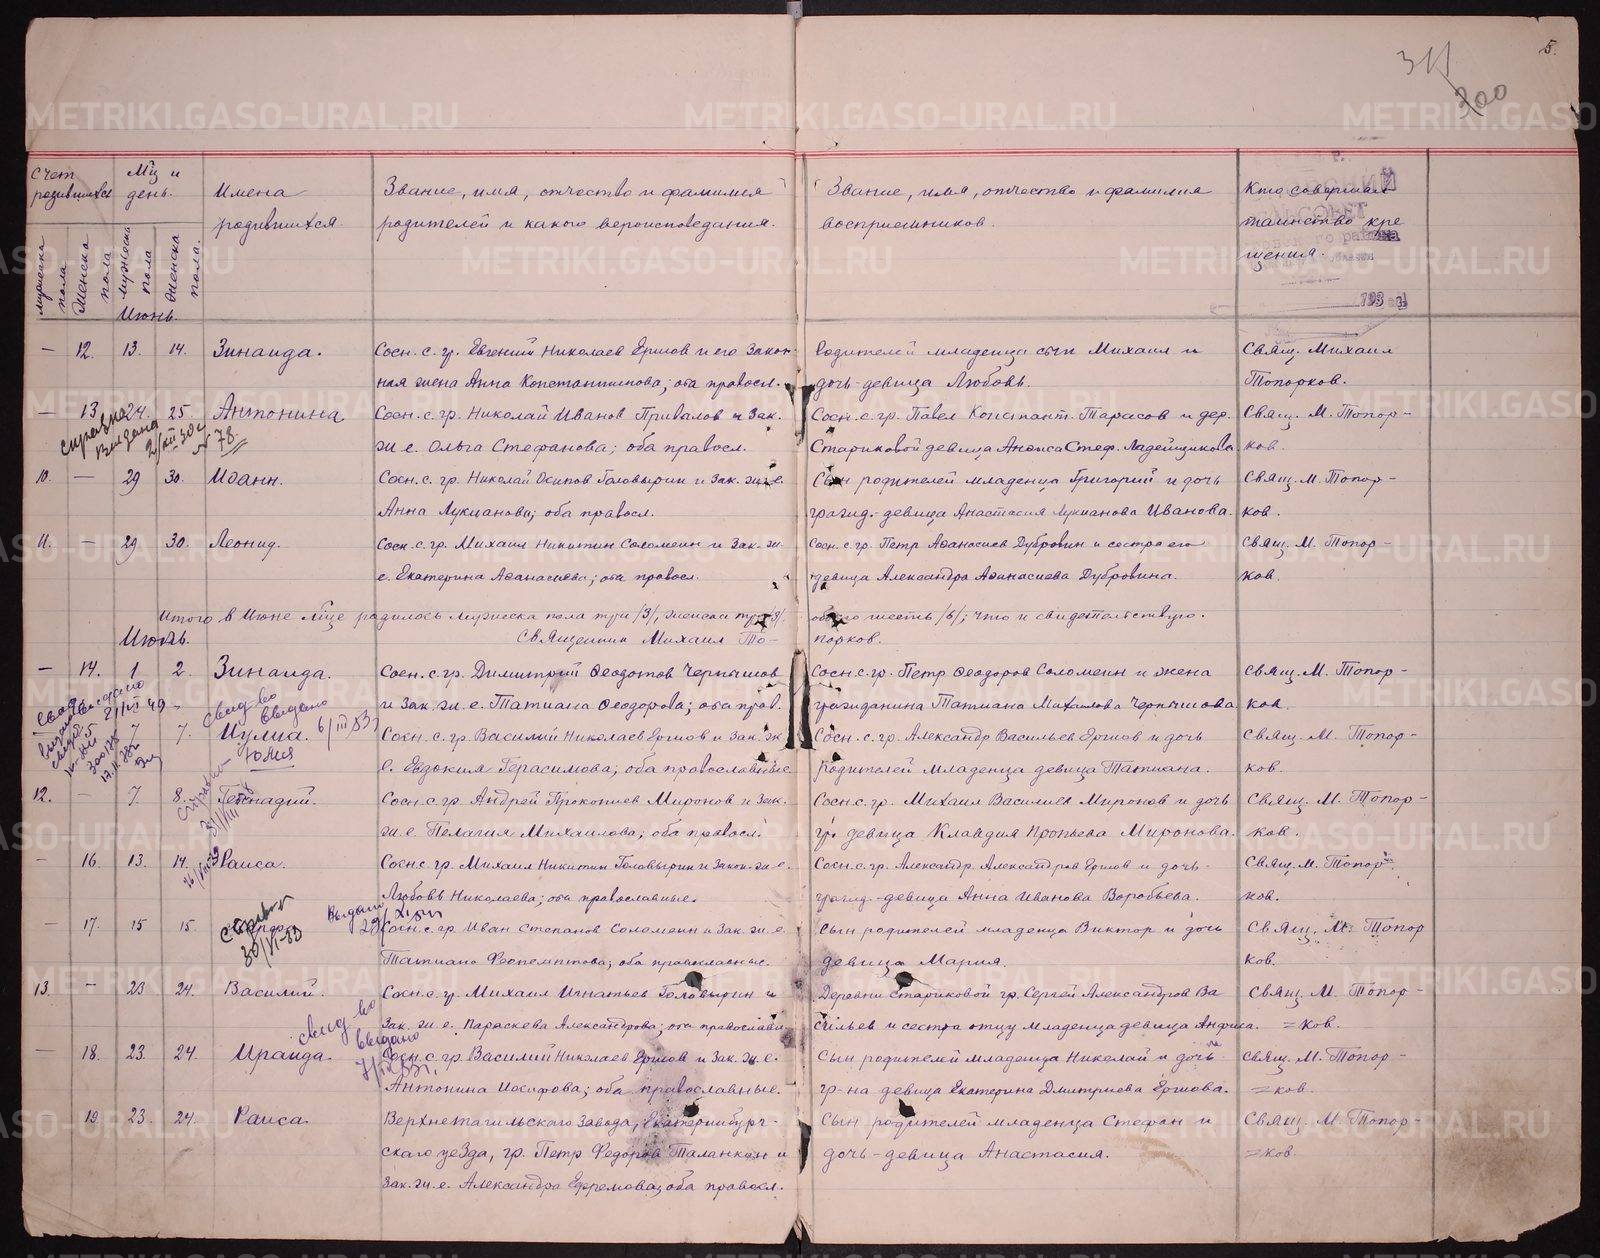 5.
311
300
Счет родившихся
Мц и день.
Имена родившихся.
Звание, имя, отчество и фамилия родителей и какого вероисповедания.
Звание, имя, отчество и фамилия восприемников.
Кто совершал таинство крещения.
мужеска пола
женска пола
мужеска пола
женска пола.
193 г.
Июнь.
— 12. 13. 14. Зинаида. Сосн. с. гр. Евгений Николаев Ершов и его закон- Родителей младенца сын Михаил и Свящ. Михаил
ная жена Анна Константинова; оба правосл. дочь-девица Любовь. Топорков.
— 13 24. 25. Антонина Сосн. с. гр. Николай Иванов Привалов и зак. Сосн. с. гр. Павел Констант. Тарасов и дер. Свящ. М. Топор-
справка выдана 2/XII 30 г № 78
ж. е. Ольга Стефанова; оба правосл. Стариковой девица Анфиса Стеф. Ладейщикова. ков.
10. — 29 30. Иоанн. Сосн. с. гр. Николай Осипов Головырин и зак. ж. е. Сын родителей младенца Григорий и дочь Свящ. М. Топор-
Анна Лукианова; оба правосл. гражд.-девица Анастасия Лукианова Иванова. ков.
11. — 29 30. Леонид. Сосн. с. гр. Михаил Никитин Соломеин и зак. ж. Сосн. с. гр. Петр Афанасиев Дубровин и сестра его Свящ. М. Топор-
е. Екатерина Афанасиева; оба правосл. девица Александра Афанасиева Дубровина. ков.
Итого в Июне м-це родилось мужеска пола три /3/, женска три /3/, обоего шесть /6/; что и свидетельствую.
Священник Михаил Топорков.
Июль.
— 14. 1 2. Зинаида. Сосн. с. гр. Димитрий Феодотов Чернышов Сосн. с. гр. Петр Феодоров Соломеин и жена Свящ. М. Топор-
и зак. ж. е. Татиана Феодорова; оба прав. гражданина Татиана Михаилова Чернышова. ков.
свид-во выдано 6/III 53
7 7. Иулиа. Сосн. с. гр. Василий Николаев Ершов и зак. ж. Сосн. с. гр. Александр Васильев Ершов и дочь Свящ. М. Топор-
Юлия
е. Евдокия Герасимова; оба православные родителей младенца девица Татиана. ков.
12. — 7 8. Геннадий. Сосн. с. гр. Андрей Прокопиев Миронов и зак. Сосн. с. гр. Михаил Василиев Миронов и дочь Свящ. М. Топор-
ж. е. Пелагия Михаилова; оба правосл. гр. девица Клавдия Миронова. ков.
— 16. 13. 14. Раиса. Сосн. с. гр. Михаил Никитин Головырин и закон. ж. е. Сосн. с. гр. Александр Александров Ершов и дочь- Свящ. М. Топор-
Любовь Николаева; оба православные. гражд.-девица Анна Иванова Воробьева. ков.
выдано
— 17. 15 15. Сосн. с. гр. Иван Степанов Соломеин и зак. ж. е. Сын родителей младенца Виктор и дочь Свящ. М. Топор
30/VI-53
Татиана Феопемптова; оба православные. девица Мария. ков.
13. — 23 24. Василий. Сосн. с. гр. Михаил Игнатьев Головырин и Деревни Стариковой гр. Сергей Александров Ва Свящ. М. Топор-
зак. ж. е. Параскева Александрова; оба православн. сильев и сестра отцу младенца девица Анфиса. =ков.
свид-во выдано
— 18. 23. 24. Ираида. Сосн. с. гр. Василий Николаев Ершов и зак. ж. е. Сын родителей младенца Николай и дочь Свящ. М. Топор-
Антонина Иосифова; оба православные. гр-на девица Екатерина Дмитриева Ершова. =ков.
19. 23. 24. Раиса. Верхнетагильскаго завода, Екатеринбург- Сын родителей младенца Стефан и Свящ. М. Топор-
скаго уезда, гр. Петр Федоров Таланкин и дочь-девица Анастасия. =ков.
зак. ж. е. Александра Ефремова; оба правосл.
METRIKI.GASO-URAL.RU